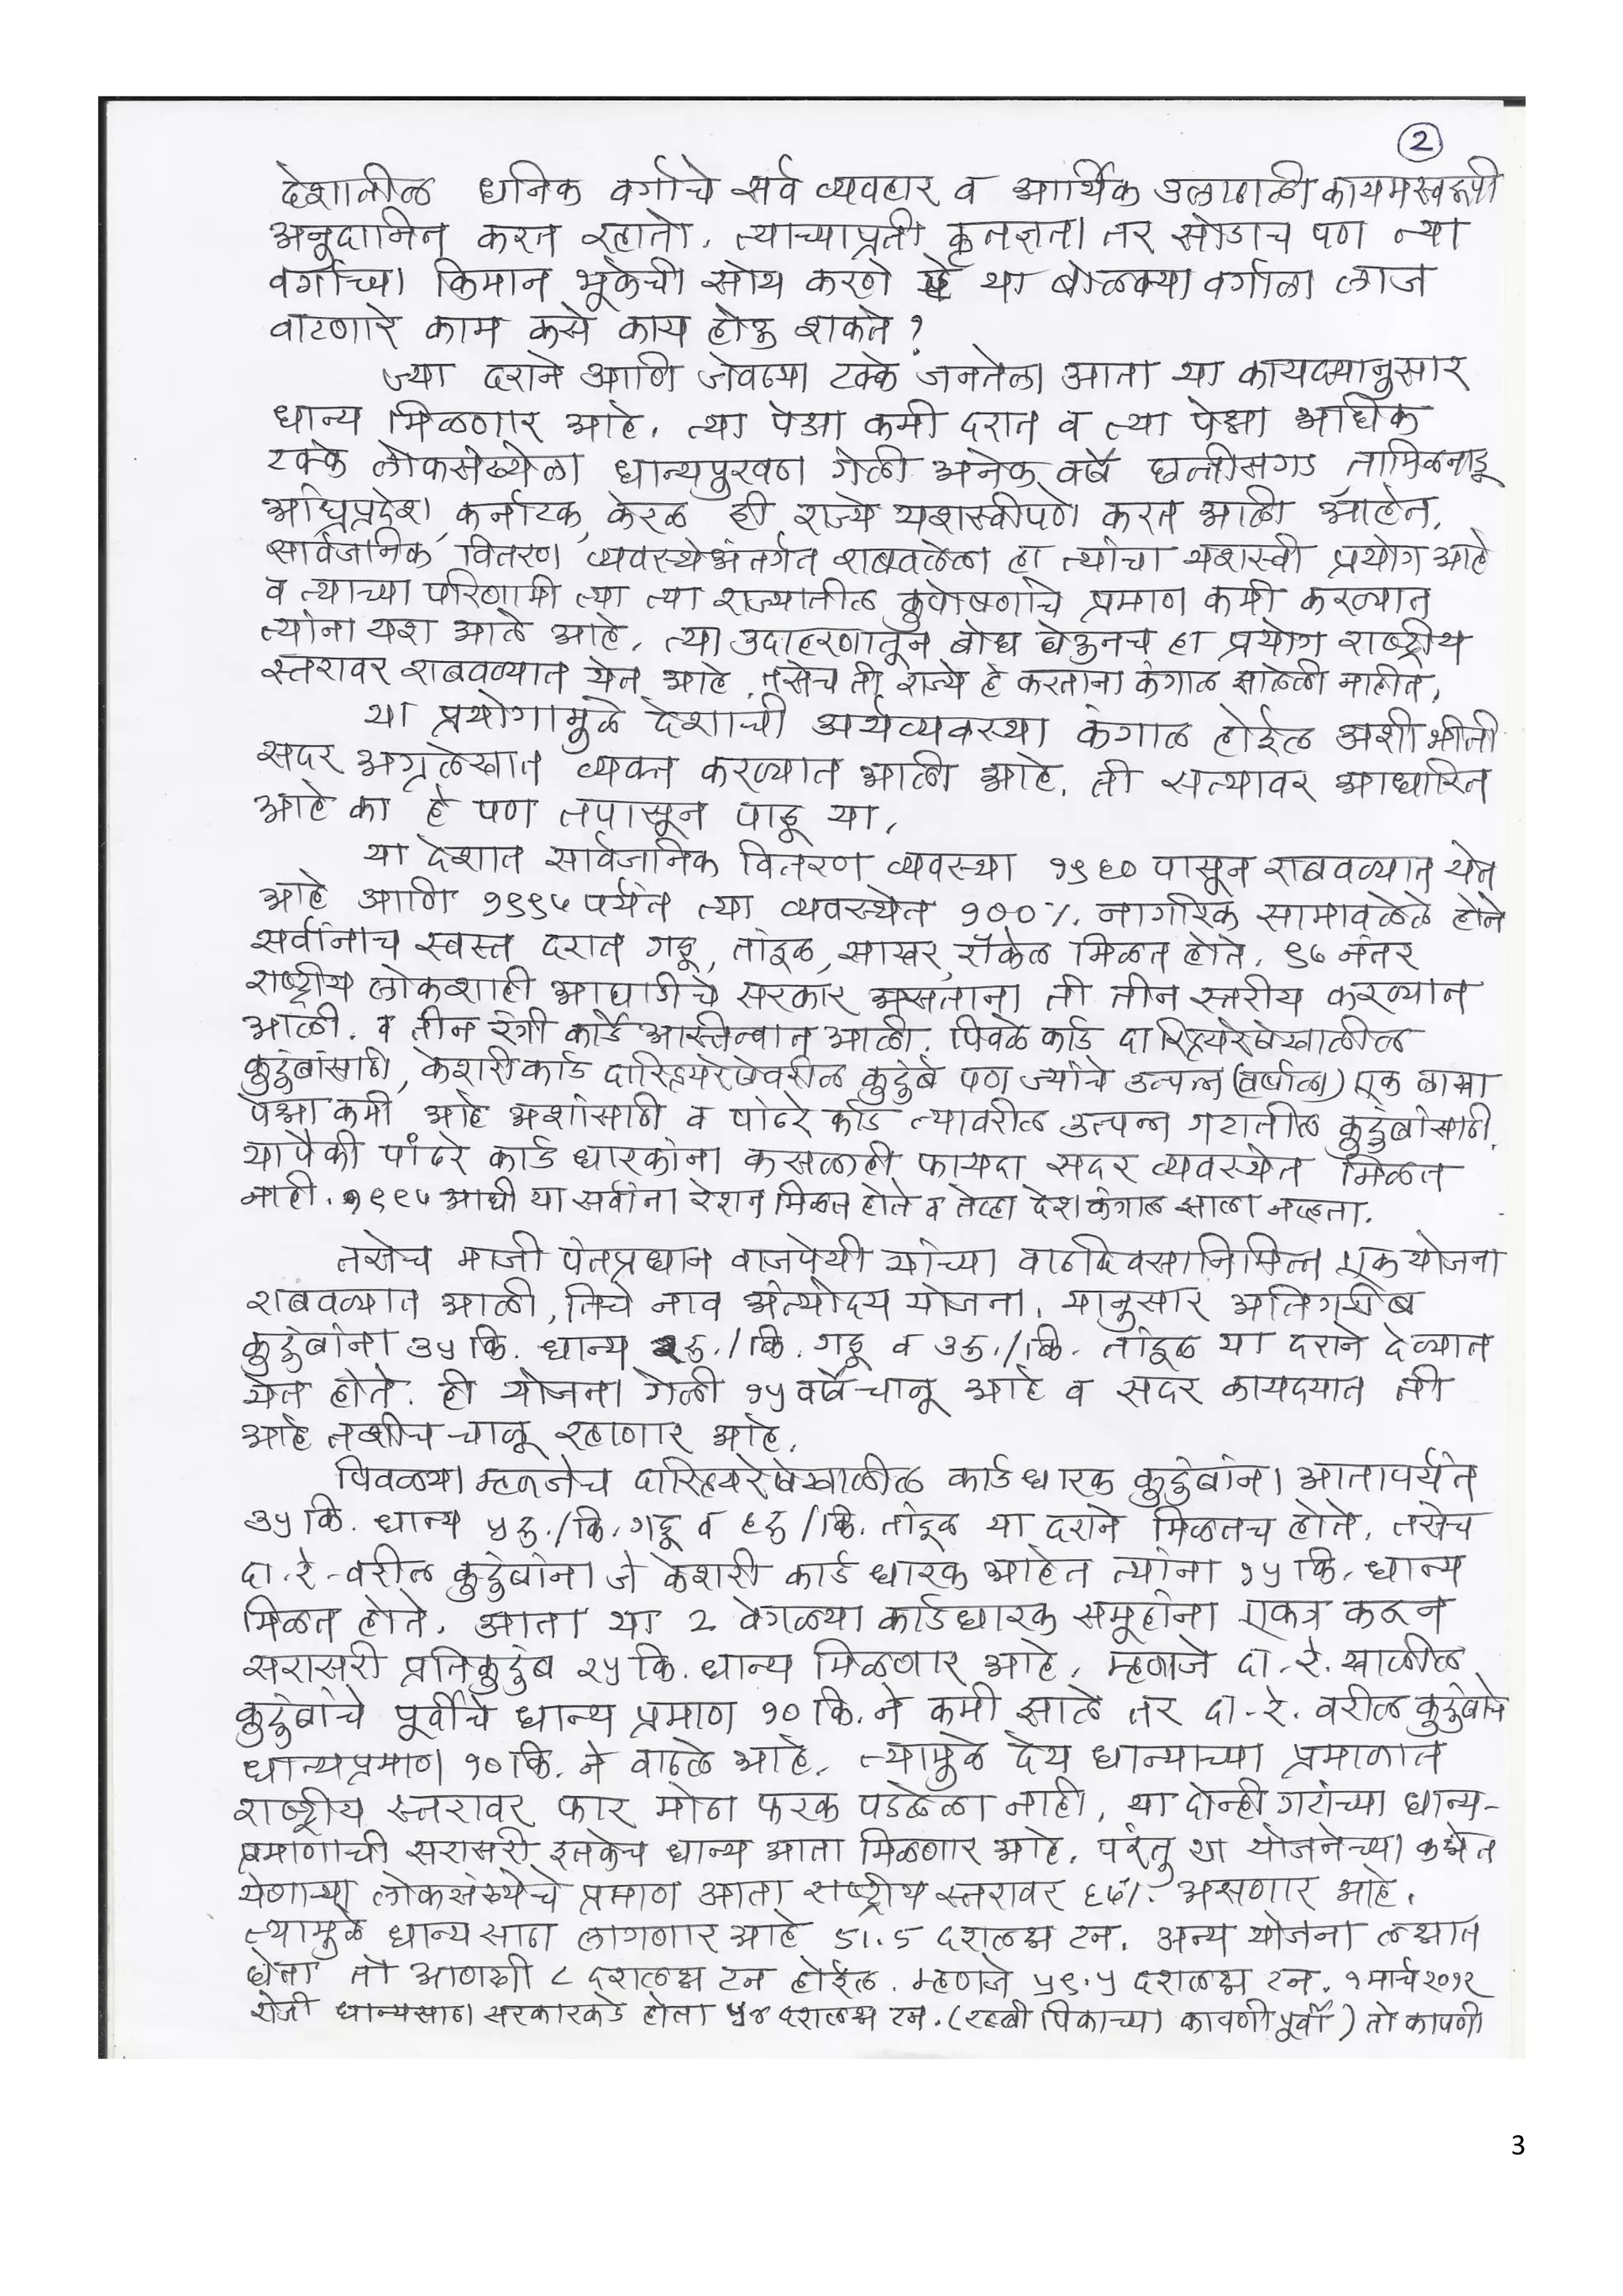 2
देशातील धनिक वर्गाचे सर्व व्यवहार व आर्थिक उलाढाली कायमस्वरूपी
अनुदानित करत रहातो. त्याच्याप्रती कृतज्ञता तर सोडाच पण त्या
वर्गाच्या किमान भूकेची सोय करणे हे या बोलक्या वर्गाला लाज
वाटणारे काम कसे काय होऊ शकते?
ज्या दराने आणि जेवढ्या टक्के जनतेला आता या कायद्यानुसार
धान्य मिळणार आहे. त्या पेक्षा कमी दरात व त्या पेक्षा अधिक
टक्के लोकसंख्येला धान्यपुरवठा गेली अनेक वर्षे छत्तीसगड तामिळनाडू
आंध्रप्रदेश, कर्नाटक, केरळ ही राज्ये यशस्वीपणे करत आली आहेत.
सार्वजनिक वितरण व्यवस्थेअंतर्गत राबवलेला हा त्यांचा यशस्वी प्रयोग आहे
व त्याच्या परिणामी त्या त्या राज्यातील कुपोषणाचे प्रमाण कमी करण्यात
त्यांना यश आले आहे. त्या उदाहरणातून बोध घेऊनच हा प्रयोग राष्ट्रीय
स्तरावर राबवण्यात येत आहे. तसेच ती राज्ये हे करताना कंगाल झालेली नाहीत.
या प्रयोगामुळे देशाची अर्थव्यवस्था कंगाल होईल अशी भीती
सदर अग्रलेखात व्यक्त करण्यात आली आहे. ती सत्यावर आधारित
आहे का हे पण तपासून पाहू या.
या देशात सार्वजनिक वितरण व्यवस्था १९६० पासून राबवण्यात येत
आहे आणि १९९७ पर्यंत त्या व्यवस्थेत १००% नागरिक सामावलेले होते
सर्वांनाच स्वस्त दरात गहू, तांदूळ, साखर, रॉकेल मिळत होते. ९७ नंतर
राष्ट्रीय लोकशाही आघाडीचे सरकार असताना ती तीन स्तरीय करण्यात
आली. व तीन रंगी कार्डे अस्तित्वात आली. पिवळे कार्ड दारिद्र्यरेषेखालील
कुटुंबांसाठी, केशरी कार्ड दारिद्र्यरेषेवरील कुटुंबे पण ज्यांचे उत्पन्न (वर्षाला) एक लाखा
पेक्षा कमी आहे अशांसाठी व पांढरे कार्ड त्यावरील उत्पन्न गटातील कुटुंबांसाठी.
यापैकी पांढरे कार्ड धारकांना कसलाही फायदा सदर व्यवस्थेत मिळत
नाही. १९९७ आधी या सर्वांना रेशन मिळत होते व तेव्हा देश कंगाल झाला नव्हता.
तसेच माजी पंतप्रधान वाजपेयी यांच्या वाढदिवसानिमित्त एक योजना
राबवण्यात आली, तिचे नाव अंत्योदय योजना. यानुसार अतिगरीब
कुटुंबांना ३५ कि. धान्य २रु./कि. गहू व ३रु./कि. तांदूळ या दराने देण्यात
येत होते. ही योजना गेली १५ वर्षे चालू आहे व सदर कायदयात ती
आहे तशीच चालू रहाणार आहे.
पिवळ्या म्हणजेच दारिद्र्यरेषेखालील कार्डधारक कुटुंबांना आतापर्यंत
३५ कि. धान्य ५रु./कि. गहू व ६रु/कि. तांदूळ या दराने मिळतच होते. तसेच
दा.रे.-वरील कुटुंबांना जे केशरी कार्ड धारक आहेत त्यांना १५ कि. धान्य
मिळत होते. आता या २ वेगळ्या कार्डधारक समूहांना एकत्र करून
सरासरी प्रतिकुटुंब २५ कि. धान्य मिळणार आहे. म्हणजे दा.रे. खालील
कुटुंबांचे पूर्वीचे धान्य प्रमाण १० कि. ने कमी झाले तर दा.रे. वरील कुटुंबांचे
धान्यप्रमाण १० कि. ने वाढले आहे. त्यामुळे देय धान्याच्या प्रमाणात
राष्ट्रीय स्तरावर फार मोठा फरक पडलेला नाही, या दोन्ही गटांच्या धान्य-
प्रमाणाची सरासरी इतकेच धान्य आता मिळणार आहे. परंतु या योजनेच्या कक्षेत
येणाऱ्या लोकसंख्येचे प्रमाण आता राष्ट्रीय स्तरावर ६७% असणार आहे.
त्यामुळे धान्य साठा लागणार आहे ५१.५ दशलक्ष टन. अन्य योजना लक्षात
घेता तो आणखी ८ दशलक्ष टन होईल. म्हणजे ५९.५ दशलक्ष टन. १ मार्च २०१२
रोजी धान्यसाठा सरकारकडे होता ५४ दशलक्ष टन. (रब्बी पिकाच्या कापणी पूर्वी) तो कापणी
3